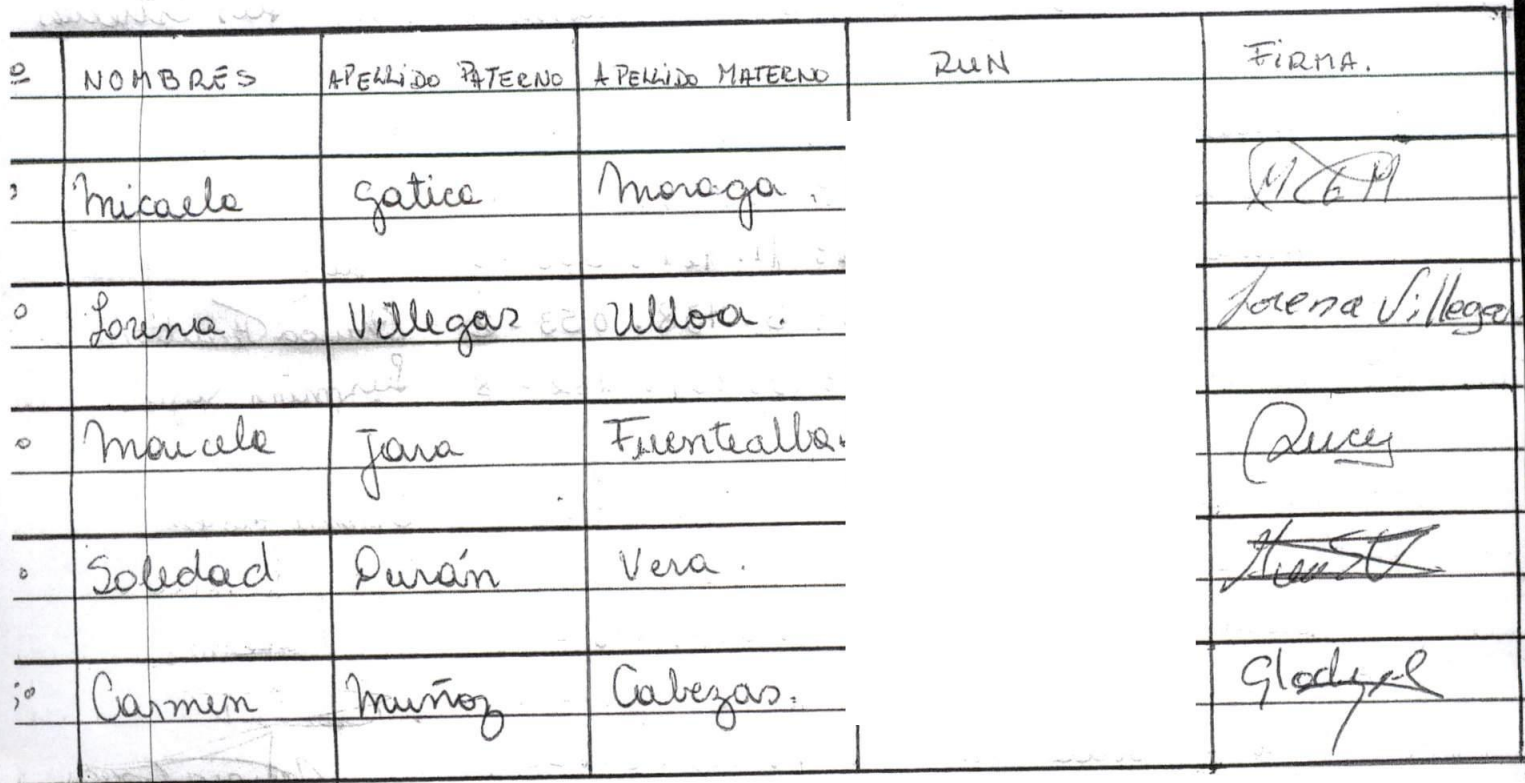 º NOMBRES APELLIDO PATERNO APELLIDO MATERNO RUN FIRMA.
º Micaela Gatica Moraga. MGM
º Lorena Villegas Ulloa. Lorena Villegas
º Marcela Jara Fuentealba.
º Soledad Durán Vera.
º Carmen Muñoz Cabezas.